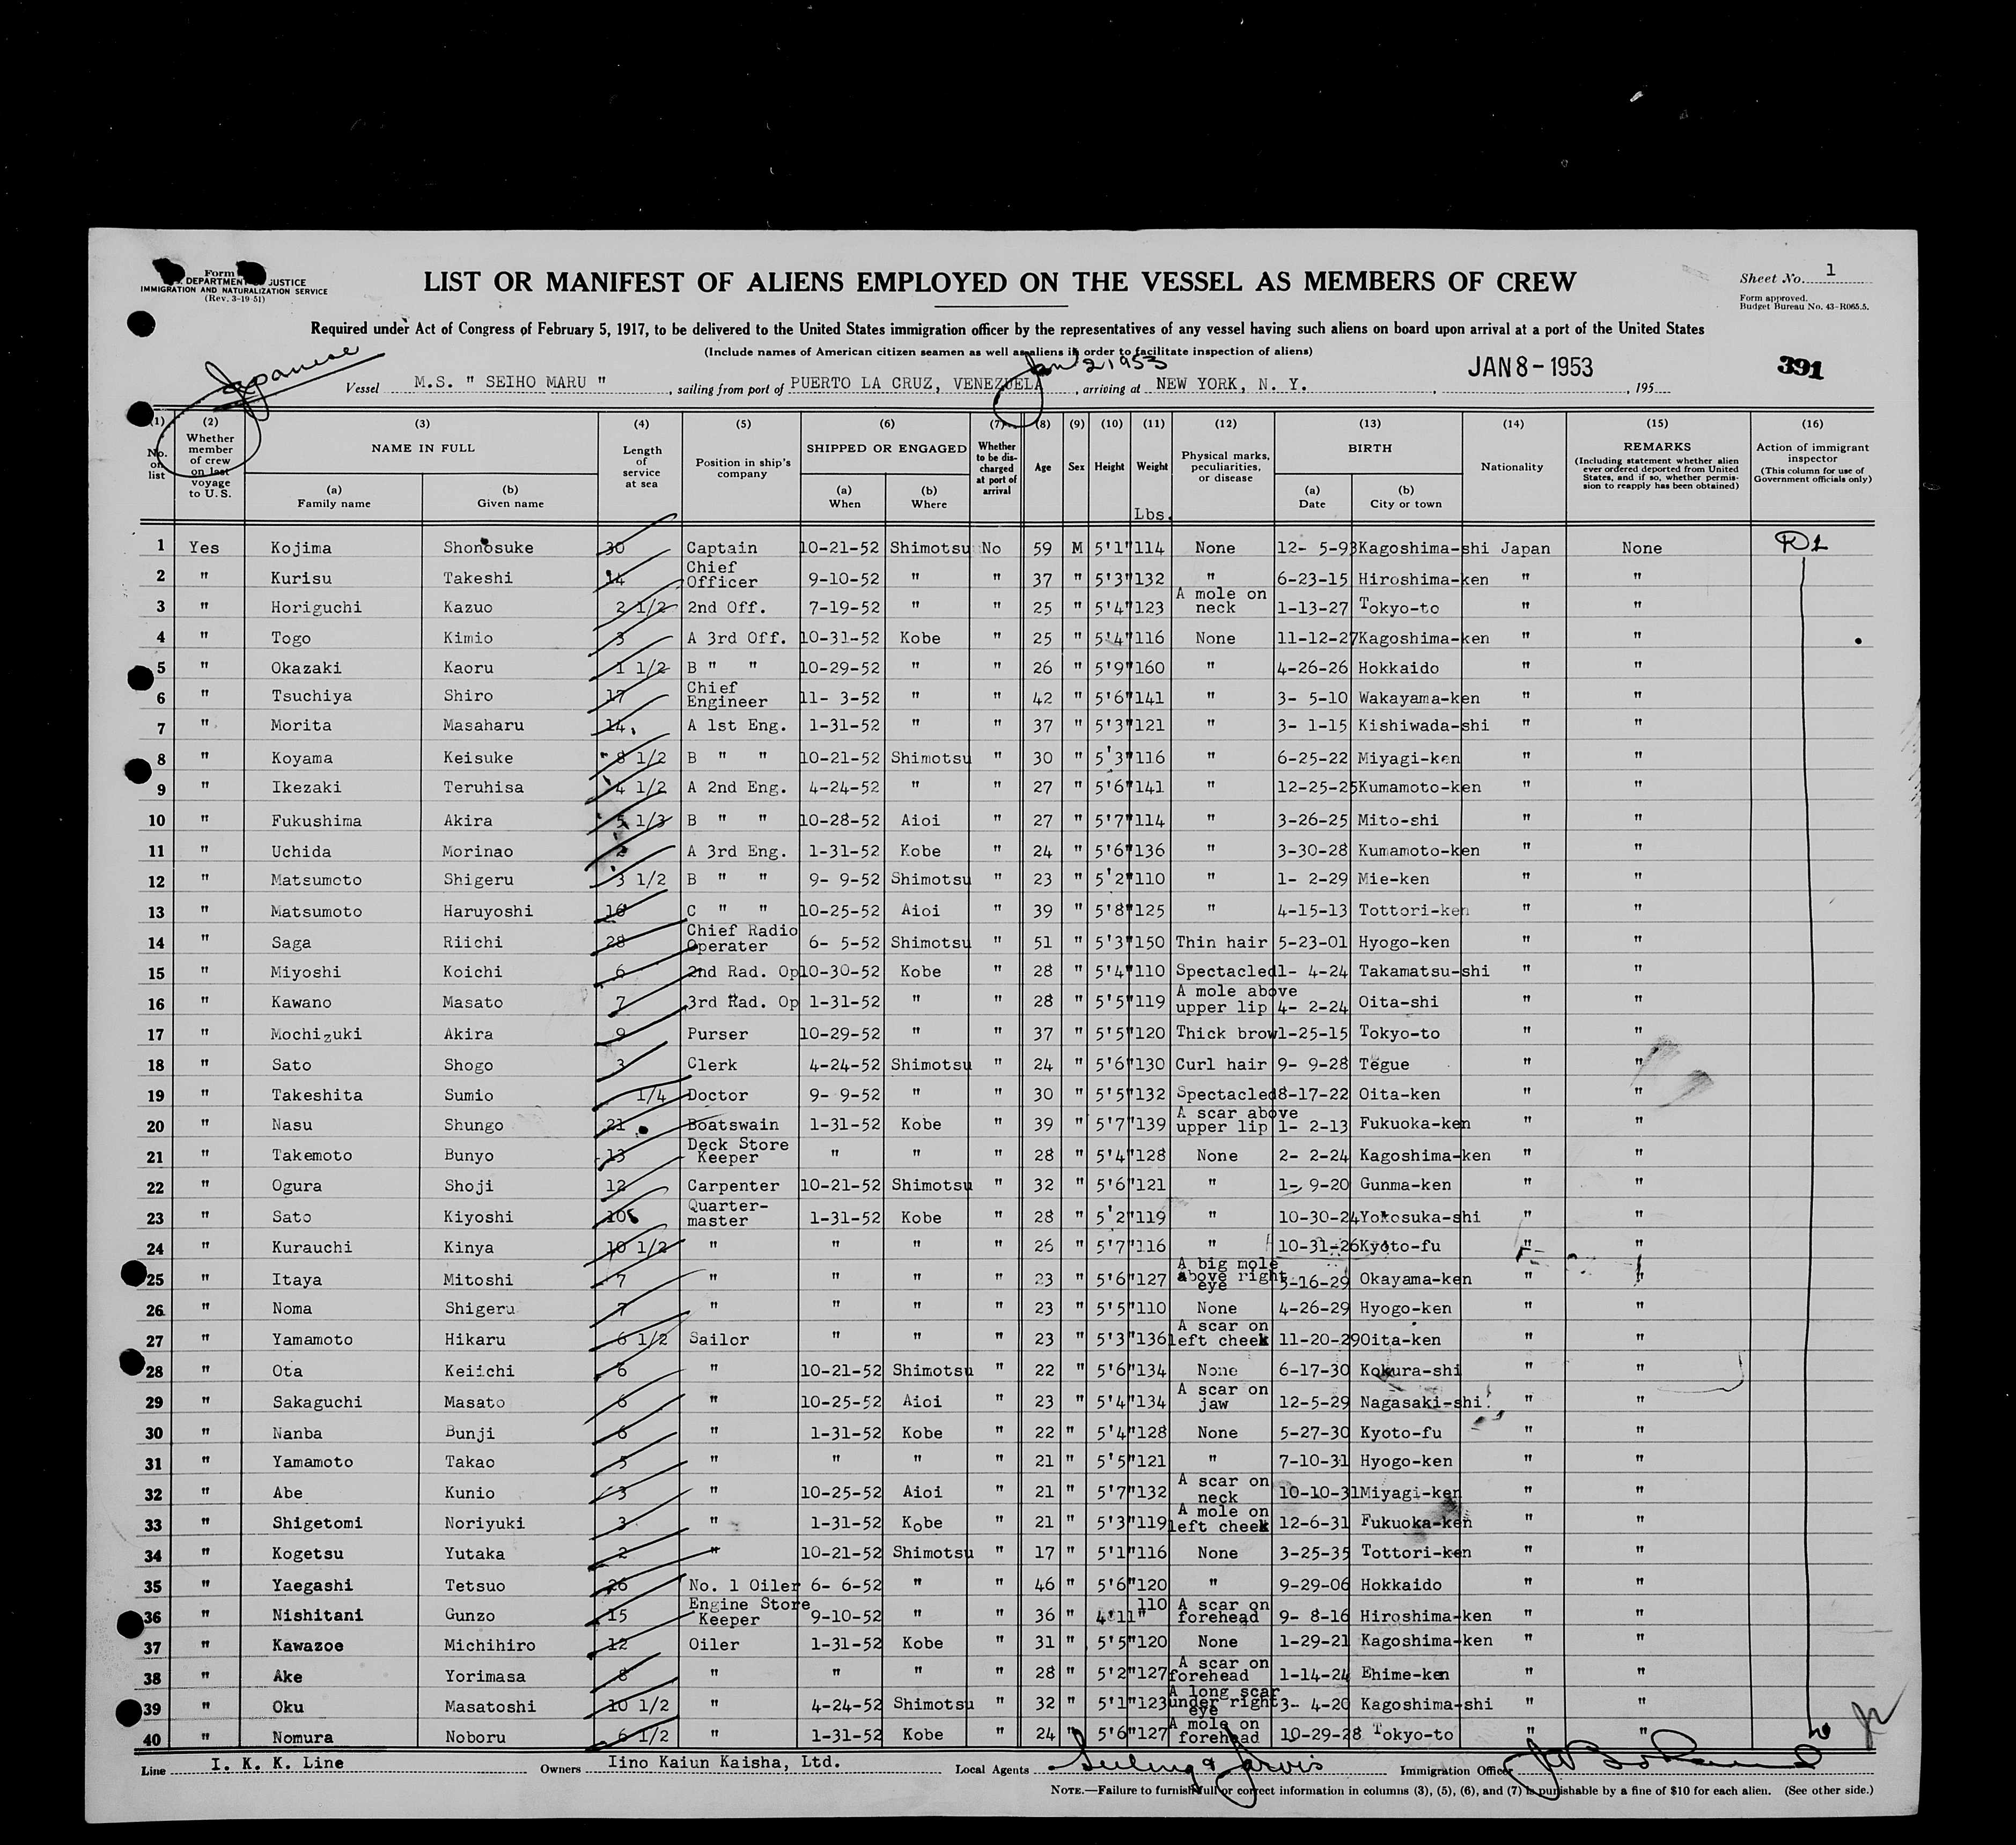 Form
DEPARTMENT JUSTICE
IMMIGRATION AND NATURALIZATION SERVICE
(Rev. 3-19-51)
LIST OR MANIFEST OF ALIENS EMPLOYED ON THE VESSEL AS MEMBERS OF CREW
Sheet No. 1
Form approved.
Budget Bureau No. 43-R065.5.
Required under Act of Congress of February 5, 1917, to be delivered to the United States immigration officer by the representatives of any vessel having such aliens on board upon arrival at a port of the United States
(Include names of American citizen seamen as well as aliens in order to facilitate inspection of aliens)
Japanese
Jan 2 1953
JAN 8 - 1953
391
Vessel M.S. " SEIHO MARU ", sailing from port of PUERTO LA CRUZ, VENEZUELA, arriving at NEW YORK, N. Y., 195
(1) (2) (3) (4) (5) (6) (7) (8) (9) (10) (11) (12) (13) (14) (15) (16)
No. on list
Whether member of crew on last voyage to U. S.
NAME IN FULL
(a) Family name
(b) Given name
Length of service at sea
Position in ship's company
SHIPPED OR ENGAGED
(a) When
(b) Where
Whether to be discharged at port of arrival
Age
Sex
Height
Weight
Lbs.
Physical marks, peculiarities, or disease
BIRTH
(a) Date
(b) City or town
Nationality
REMARKS
(Including statement whether alien ever ordered deported from United States, and if so, whether permission to reapply has been obtained)
Action of immigrant inspector
(This column for use of Government officials only)
1 Yes Kojima Shonosuke 30 Captain 10-21-52 Shimotsu No 59 M 5'1" 114 None 12- 5-93 Kagoshima-shi Japan None
2 " Kurisu Takeshi 14 Chief Officer 9-10-52 " " 37 " 5'3" 132 " 6-23-15 Hiroshima-ken " "
3 " Horiguchi Kazuo 2 1/2 2nd Off. 7-19-52 " " 25 " 5'4" 123 A mole on neck 1-13-27 Tokyo-to " "
4 " Togo Kimio 3 A 3rd Off. 10-31-52 Kobe " 25 " 5'4" 116 None 11-12-27 Kagoshima-ken " "
5 " Okazaki Kaoru 1 1/2 B " " 10-29-52 " " 26 " 5'9" 160 " 4-26-26 Hokkaido " "
6 " Tsuchiya Shiro 17 Chief Engineer 11- 3-52 " " 42 " 5'6" 141 " 3- 5-10 Wakayama-ken " "
7 " Morita Masaharu 14 A 1st Eng. 1-31-52 " " 37 " 5'3" 121 " 3- 1-15 Kishiwada-shi " "
8 " Koyama Keisuke 8 1/2 B " " 10-21-52 Shimotsu " 30 " 5'3" 116 " 6-25-22 Miyagi-ken " "
9 " Ikezaki Teruhisa 4 1/2 A 2nd Eng. 4-24-52 " " 27 " 5'6" 141 " 12-25-25 Kumamoto-ken " "
10 " Fukushima Akira 5 1/3 B " " 10-28-52 Aioi " 27 " 5'7" 114 " 3-26-25 Mito-shi " "
11 " Uchida Morinao 2 A 3rd Eng. 1-31-52 Kobe " 24 " 5'6" 136 " 3-30-28 Kumamoto-ken " "
12 " Matsumoto Shigeru 3 1/2 B " " 9- 9-52 Shimotsu " 23 " 5'2" 110 " 1- 2-29 Mie-ken " "
13 " Matsumoto Haruyoshi 16 C " " 10-25-52 Aioi " 39 " 5'8" 125 " 4-15-13 Tottori-ken " "
14 " Saga Riichi 28 Chief Radio Operater 6- 5-52 Shimotsu " 51 " 5'3" 150 Thin hair 5-23-01 Hyogo-ken " "
15 " Miyoshi Koichi 6 2nd Rad. Op 10-30-52 Kobe " 28 " 5'4" 110 Spectacled 1- 4-24 Takamatsu-shi " "
16 " Kawano Masato 7 3rd Rad. Op 1-31-52 " " 28 " 5'5" 119 A mole above upper lip 4- 2-24 Oita-shi " "
17 " Mochizuki Akira 9 Purser 10-29-52 " " 37 " 5'5" 120 Thick brow 1-25-15 Tokyo-to " "
18 " Sato Shogo 3 Clerk 4-24-52 Shimotsu " 24 " 5'6" 130 Curl hair 9- 9-28 Tegue " "
19 " Takeshita Sumio 1/4 Doctor 9- 9-52 " " 30 " 5'5" 132 Spectacled 8-17-22 Oita-ken " "
20 " Nasu Shungo 21 Boatswain 1-31-52 Kobe " 39 " 5'7" 139 A scar above upper lip 1- 2-13 Fukuoka-ken " "
21 " Takemoto Bunyo 13 Deck Store Keeper " " " 28 " 5'4" 128 None 2- 2-24 Kagoshima-ken " "
22 " Ogura Shoji 12 Carpenter 10-21-52 Shimotsu " 32 " 5'6" 121 " 1- 9-20 Gunma-ken " "
23 " Sato Kiyoshi 10 Quarter-master 1-31-52 Kobe " 28 " 5'2" 119 " 10-30-24 Yokosuka-shi " "
24 " Kurauchi Kinya 10 1/2 " " " " 26 " 5'7" 116 " 10-31-26 Kyoto-fu " "
25 " Itaya Mitoshi 7 " " " " 23 " 5'6" 127 A big mole above right eye 5-16-29 Okayama-ken " "
26 " Noma Shigeru 7 " " " " 23 " 5'5" 110 None 4-26-29 Hyogo-ken " "
27 " Yamamoto Hikaru 6 1/2 Sailor " " " 23 " 5'3" 136 A scar on left cheek 11-20-29 Oita-ken " "
28 " Ota Keiichi 6 " 10-21-52 Shimotsu " 22 " 5'6" 134 None 6-17-30 Kokura-shi " "
29 " Sakaguchi Masato 6 " 10-25-52 Aioi " 23 " 5'4" 134 A scar on jaw 12-5-29 Nagasaki-shi " "
30 " Nanba Bunji 6 " 1-31-52 Kobe " 22 " 5'4" 128 None 5-27-30 Kyoto-fu " "
31 " Yamamoto Takao 5 " " " " 21 " 5'5" 121 " 7-10-31 Hyogo-ken " "
32 " Abe Kunio 3 " 10-25-52 Aioi " 21 " 5'7" 132 A scar on neck 10-10-31 Miyagi-ken " "
33 " Shigetomi Noriyuki 3 " 1-31-52 Kobe " 21 " 5'3" 119 A mole on left cheek 12-6-31 Fukuoka-ken " "
34 " Kogetsu Yutaka 2 " 10-21-52 Shimotsu " 17 " 5'1" 116 None 3-25-35 Tottori-ken " "
35 " Yaegashi Tetsuo 26 No. 1 Oiler 6- 6-52 " " 46 " 5'6" 120 " 9-29-06 Hokkaido " "
36 " Nishitani Gunzo 15 Engine Store Keeper 9-10-52 " " 36 " 4'11" 110 A scar on forehead 9- 8-16 Hiroshima-ken " "
37 " Kawazoe Michihiro 12 Oiler 1-31-52 Kobe " 31 " 5'5" 120 None 1-29-21 Kagoshima-ken " "
38 " Ake Yorimasa 8 " " " " 28 " 5'2" 127 A scar on forehead 1-14-24 Ehime-ken " "
39 " Oku Masatoshi 10 1/2 " 4-24-52 Shimotsu " 32 " 5'1" 123 A long scar under right eye 3- 4-20 Kagoshima-shi " "
40 " Nomura Noboru 6 1/2 " 1-31-52 Kobe " 24 " 5'6" 127 A mole on forehead 10-29-28 Tokyo-to " "
Line I. K. K. Line Owners Iino Kaiun Kaisha, Ltd. Local Agents Jarvis Immigration Officer
NOTE.—Failure to furnish full or correct information in columns (3), (5), (6), and (7) is punishable by a fine of $10 for each alien. (See other side.)